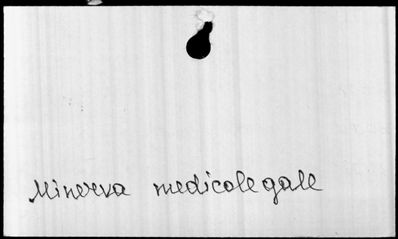 Minerva medicolegale